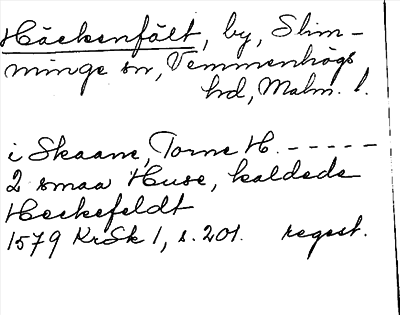 Häckenfält, by, Slim-
minge sn, Vemmenhögs
hd, Malm. l.
i Skaane, Torne H. - - - - -
2 smaa Huse, kaldede
Heckefeldt
1579 KrSk 1, s. 201. regest.